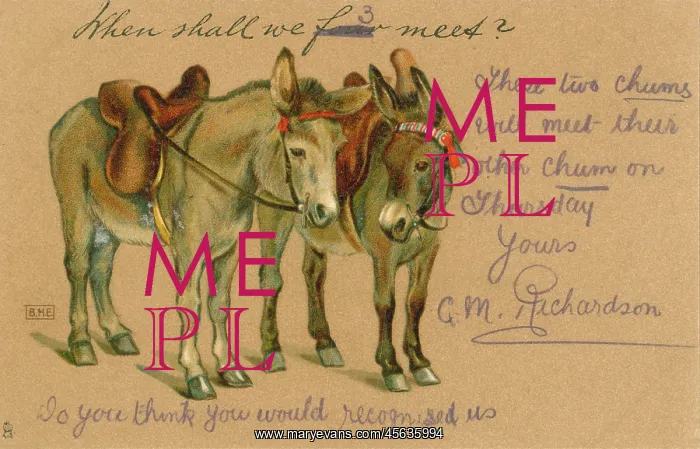 When shall we four 3 meet?
These two chums
will meet their
other chum on
Thursday
Yours
G. M. Richardson
B.H.E.
Do you think you would recognised us
ME
PL
ME
PL
www.maryevans.com/45635994